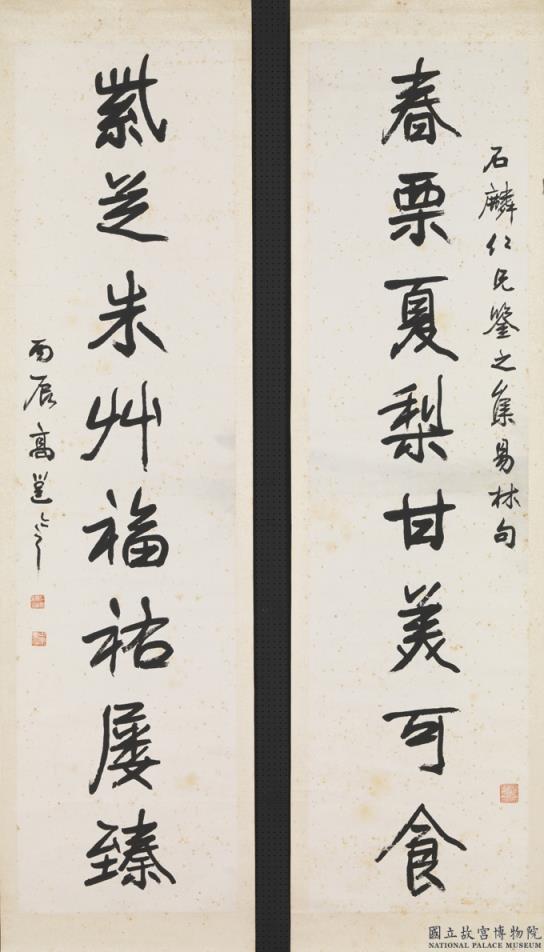 石麟仁兄鑒之集易林句
春栗夏梨甘美可食
紫芝朱艸福祐屢臻
丙辰高邕
國立故宮博物院
NATIONAL PALACE MUSEUM